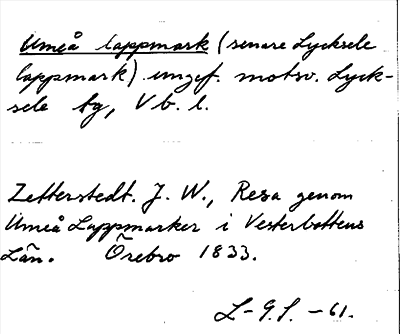 Umeå lappmark (senare Lycksele
lappmark) ungef. motsv. Lyck-
sele tg, Vb. l.
Zetterstedt. J. W., Resa genom
Umeå Lappmarker i Vesterbottens
Län. Örebro 1833.
L-G.L. -61.